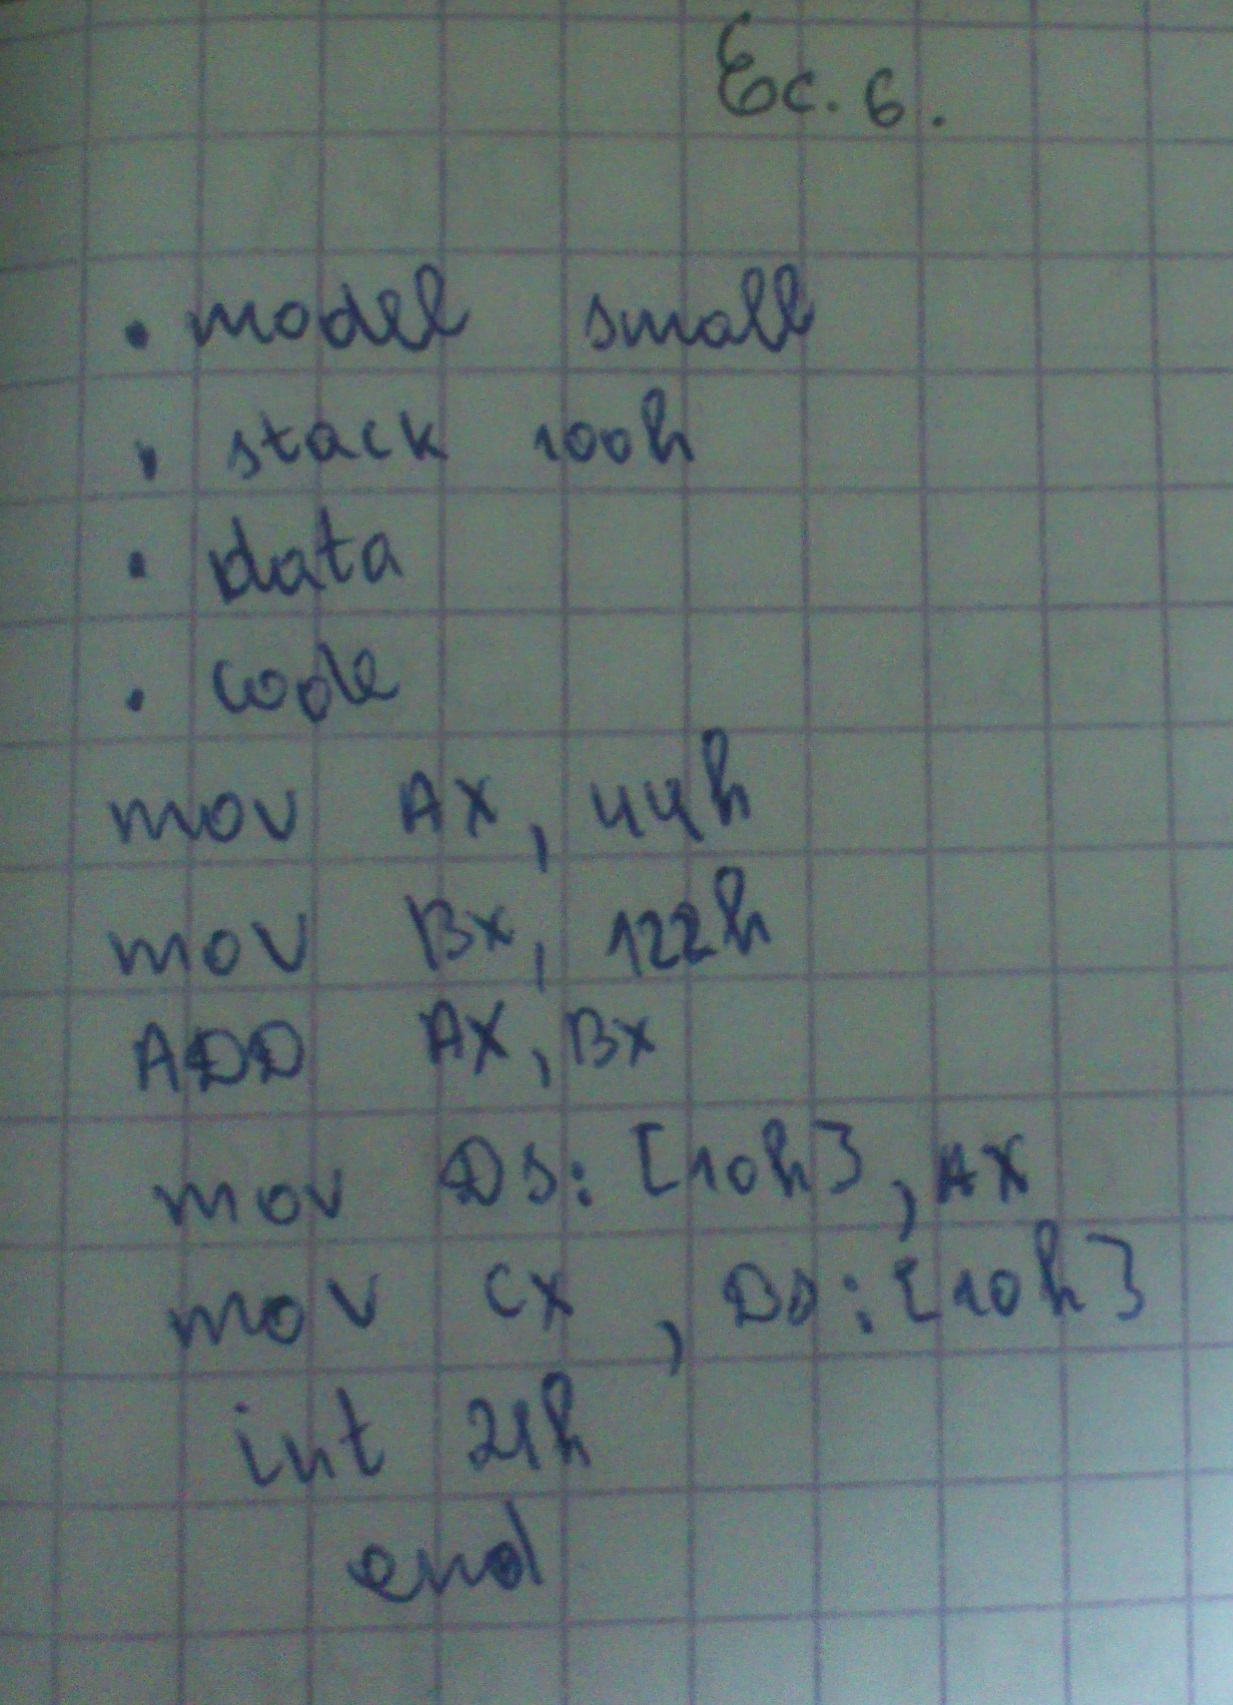 Ec. 6.
. model small
. stack 100h
. data
. code
mov AX, 44h
mov BX, 122h
ADD AX, BX
mov DS: [10h], AX
mov CX , DS: [10h]
int 21h
end